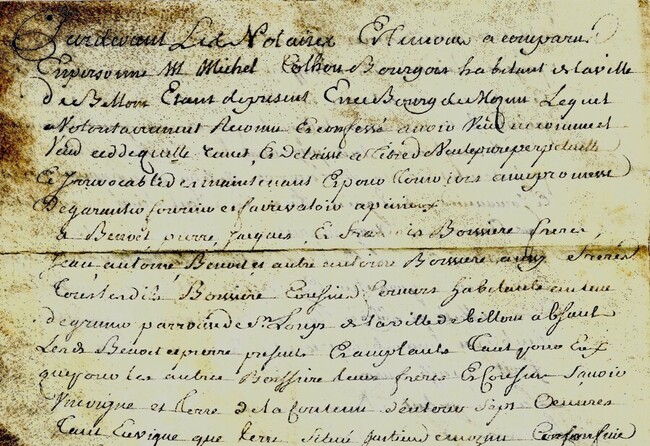 Pardevant Les Notaires Et temoins a comparu
En personne Mr Michel Colhon Bourgois habitant de la ville
de Billom Etant de present En ce Bourg de Mozun Lequel
a Volontairement Reconu et confessé avoir Vendu comme il
Vend cedde quitte remet et delaisse a titre de Vente pure perpetuelle
Et Irrevocable des maintenant Et pour tousjours avec promesse
De garantir fournir et faire valoir a perine
a Benoet pierre, Jacques, & francois Bossiere freres,
Jean antoine Benoet et autre antoine Bossiere aussy freres
Tous lesdits Bossiere Cousins Germains habitants au lieu
de grun parroisse de St Loup de la ville de billom absent
Les ds Benoet et pierre presents Et acceptants Tant pour Eux
que pour les autres Bossiere leurs freres Et Cousins Scavoir
Une vigne et terre de la Contenue d'environ Sept Oeuvres
Tant En vigne que terre Situé